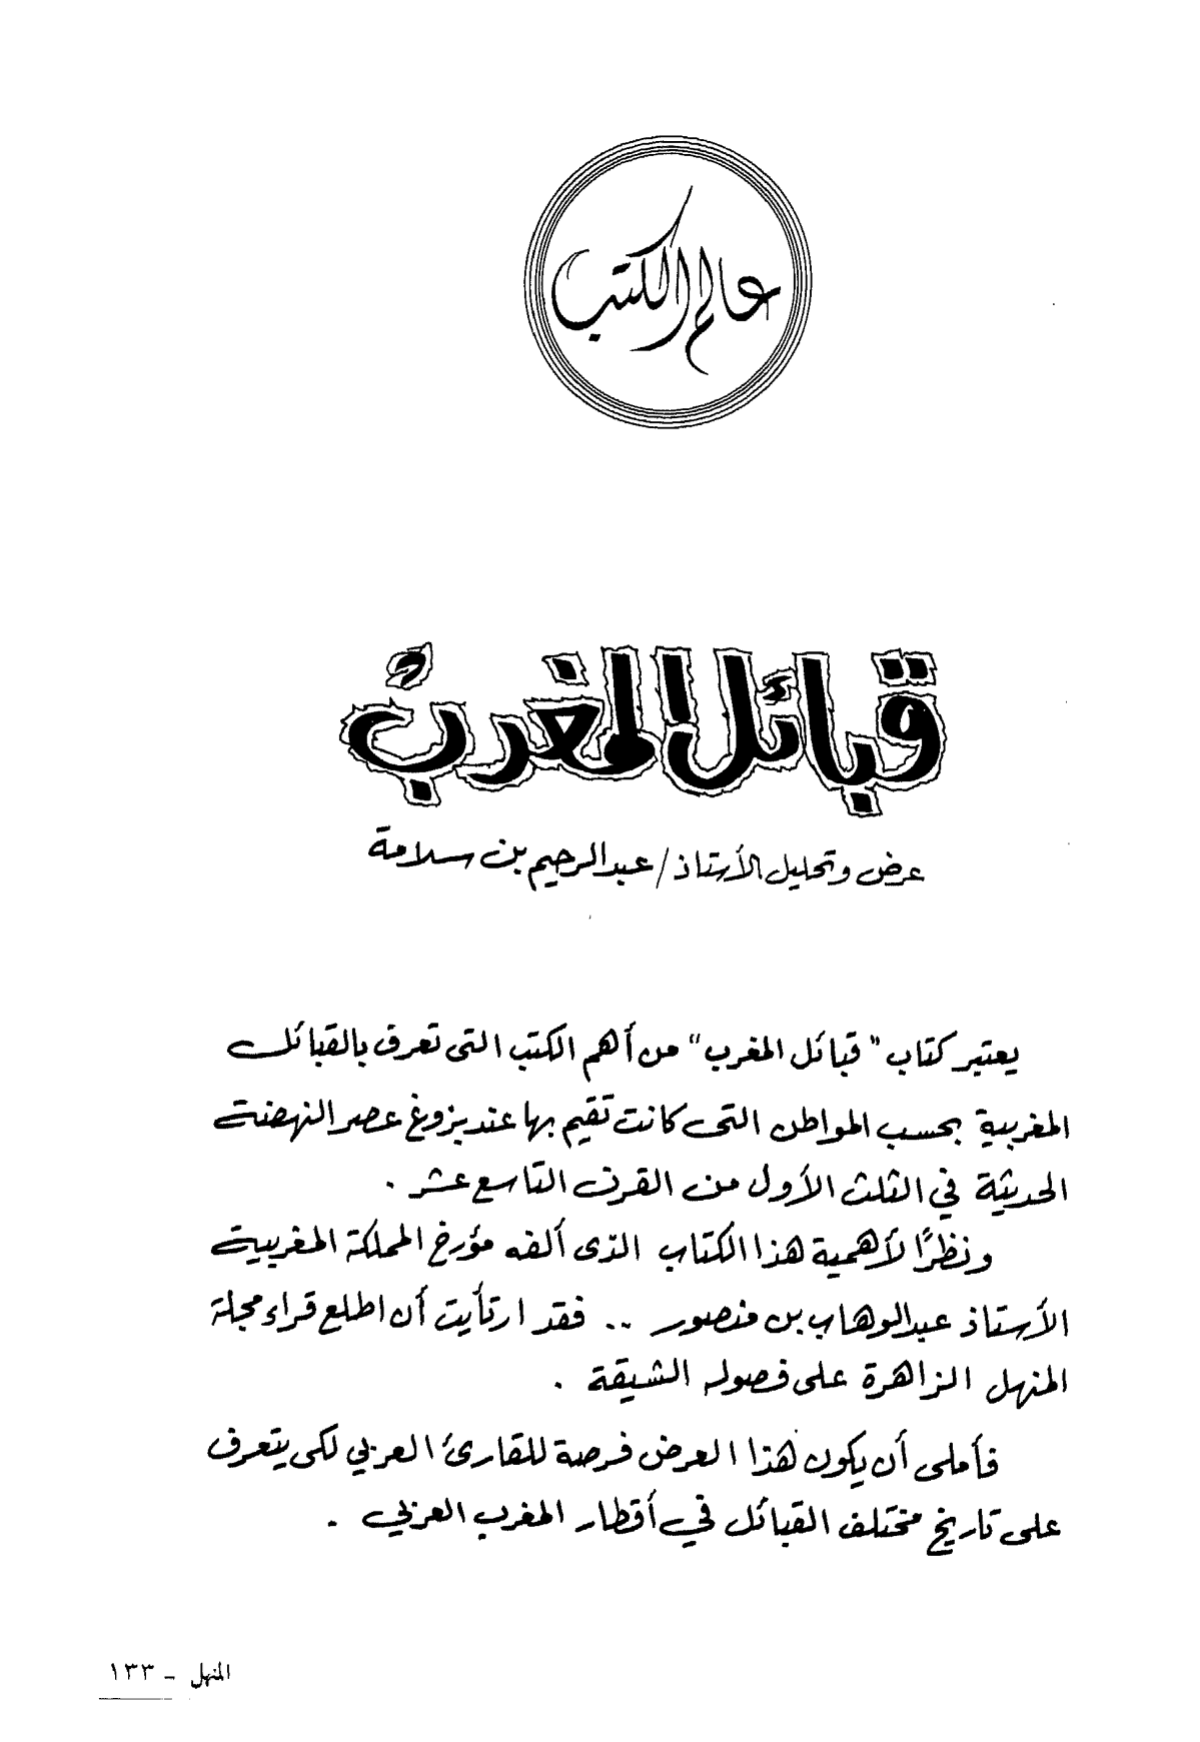 عالم الكتب
قبائل المغرب
عرض وتحليل الأستاذ / عبدالرحيم بن سلامة
يعتبر كتاب "قبائل المغرب" من أهم الكتب التى تعرف بالقبائل
المغربية بحسب المواطن التى كانت تقيم بها عند بزوغ عصر النهضة
الحديثة في الثلث الأول من القرن التاسع عشر .
ونظرًا لأهمية هذا الكتاب الذى ألفه مؤرخ المملكة المغربية
الأستاذ عبدالوهاب بن منصور .. فقد ارتأيت أن اطلع قراء مجلة
المنهل الزاهرة على فصوله الشيقة .
فأملى أن يكون هذا العرض فرصة للقارئ العربي لكى يتعرف
على تاريخ مختلف القبائل في أقطار المغرب العربي .
المنهل - ١٣٣